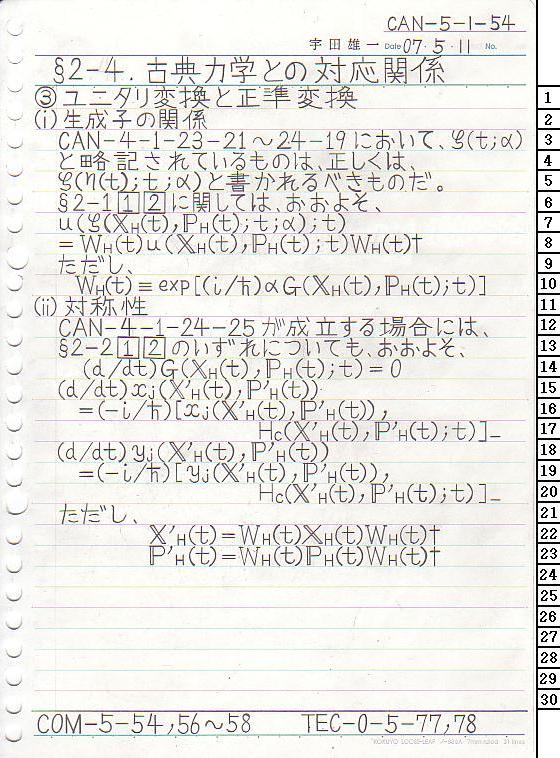 CAN-5-1-54
宇田雄一 Date 07・5・11 No.
§2-4. 古典力学との対応関係
③ユニタリ変換と正準変換
(i)生成子の関係
CAN-4-1-23-21～24-19において、ξ(t;α)
と略記されているものは、正しくは、
ξ(η(t);t;α)と書かれるべきものだ。
§2-1[1][2]に関しては、おおよそ、
u(ξ(𝕏H(t),ℙH(t);t;α);t)
=WH(t)u(𝕏H(t),ℙH(t);t)WH(t)†
ただし、
WH(t)≡exp[(i/ħ)αG(𝕏H(t),ℙH(t);t)]
(ii)対称性
CAN-4-1-24-25が成立する場合には、
§2-2[1][2]のいずれについても、おおよそ、
(d/dt)G(𝕏H(t),ℙH(t);t)=0
(d/dt)xj(𝕏'H(t),ℙ'H(t))
=(-i/ħ)[xj(𝕏'H(t),ℙ'H(t)),
Hc(𝕏'H(t),ℙ'H(t);t)]_
(d/dt)yj(𝕏'H(t),ℙ'H(t))
=(-i/ħ)[yj(𝕏'H(t),ℙ'H(t)),
Hc(𝕏'H(t),ℙ'H(t);t)]_
ただし、
𝕏'H(t)=WH(t)𝕏H(t)WH(t)†
ℙ'H(t)=WH(t)ℙH(t)WH(t)†
COM-5-54,56～58 TEC-0-5-77,78
KOKUYO LOOSE-LEAF ノ-836A 7mm ruled 31 lines
1
2
3
4
5
6
7
8
9
10
11
12
13
14
15
16
17
18
19
20
21
22
23
24
25
26
27
28
29
30